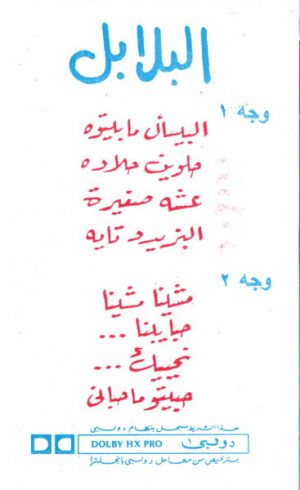 البلابل
وجه ١
البيسأل مابيتوه
حلوين حلاوه
عشه صغيرة
البزيد نايه
وجه ٢
مشينا مشينا
حبايبنا ...
نجييك ...
حبيتو ماحباني
هذا الشريط مسجل بنظام دولبي
دولبي DOLBY HX PRO
بترخيص من معامل دولبي بانجلترا